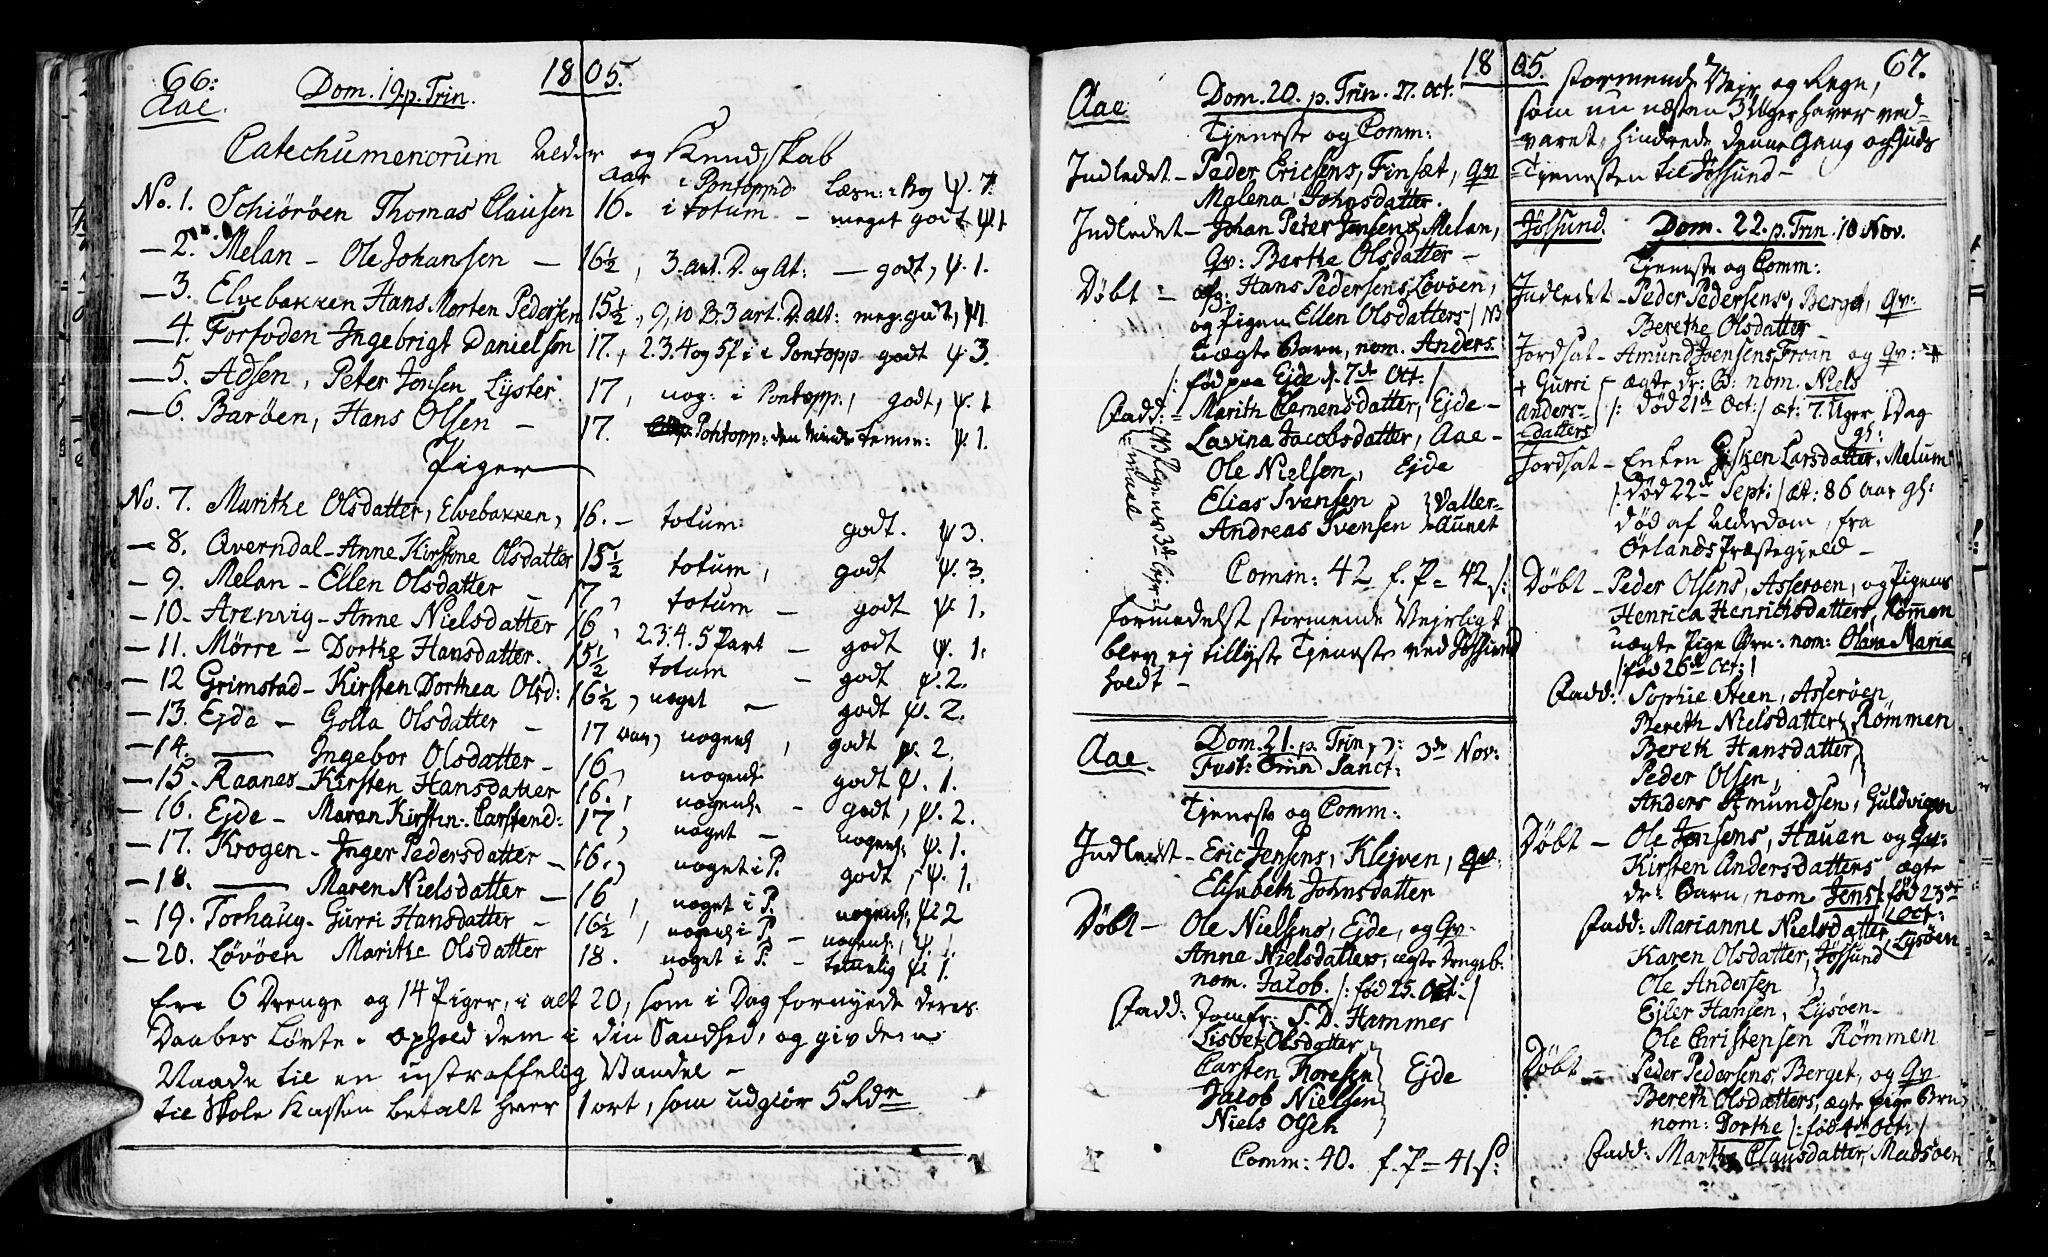 66. 1805.
Aae. Dom. 19. p. Trin.
Catechumenorum Alder og Kundskab
Aar i Pontoppid Læsn: i Bog ψ. 7
No. 1. Schiørøen Thomas Clausen 16. i totum – meget godt ψ 1
— 2. Melan – Ole Johansen — 16½, 3. art. D. og At: — godt, ψ. 1.
— 3. Elvebakken Hans Morten Pedersen 15½, 9, 10 B. 3 art. D. alt: meg. godt, ψ 1
— 4. Forfoden Ingebrigt Danielsen 17., 2. 3. 4 og 5 P. i Pontopp godt ψ 3.
— 5. Adsen, Peter Jonsen Lyster. 17, nog: i Pontopp., godt, ψ. 1
— 6. Barøen, Hans Olsen – 17. Pontopp: den mindre temm: ψ. 1.
Piger
No. 7. Marithe Olsdatter, Elvebakken, 16. – totum godt. ψ 3.
— 8. Averndal – Anne Kirstine Olsdatter 15½ totum, godt ψ. 3.
— 9. Melan – Ellen Olsdatter – 17, totum – godt ψ 1.
— 10. Arenvig – Anne Nielsdatter 16, 2. 3. 4. 5 Part – godt ψ. 1.
— 11. Mørre – Dorthe Hansdatter. 15½ totum – godt ψ. 2.
— 12 Grimstad – Kirsten Dorthea Olsd: 16½, noget – godt ψ. 2.
— 13. Ejde – Golla Olsdatter – 17 aar, nogenl, godt ψ. 2.
— 14. —— Ingebor Olsdatter – 16, nogenl godt ψ. 1.
— 15. Raanes – Kirsten Hansdatter 16., nogenl: – godt, ψ. 2.
— 16. Ejde – Maren Kirstin. Carstend: 17, noget – nogenl: ψ. 1.
— 17. Krogen – Inger Pedersdatter – 16., noget i P. godt, ψ. 1.
— 18. —— Maren Nielsdatter – 16, noget i P. nogenl, ψ 2
— 19. Torhaug – Gurri Hansdatter – 16½, nogenl i P. – nogenl:, ψ. 1.
— 20. Løvøen Marithe Olsdatter 18. noget i P. – temelig ψ 1.
Ere 6 Drenge og 14 Piger, i alt 20, som i Dag fornyede deres
Daabes Løvte. Ophold dem i din Sandhed, og giv dem
Naade til en ustraffelig Vandel –
til Skole Kassen betalt hver 1 ort, som udgiør 5 Rdr
1805. 67.
Aae Dom. 20. p. Trin. 27. Oct:
Tjeneste og Comm:
Indledet – Peder Ericsens, Finsæt, Qv
Malena Johnsdatter.
Indledet – Johan Peter Jensens, Melan,
Qv: Barthe Olsdatter –
Døbt – afg: Hans Pedersens, Løvøen,
og Pigen Ellen Olsdatters / N3
uægte Barn, nom. Anders
/: fød paa Ejde d. 7de Oct: /
Fadd: – Marith Clemensdatter, Ejde –
Lavina Jacobsdatter, Aae –
Ole Nielsen, Ejde
Elias Ivensen } Valler-
Andreas Ivensen } aunet
Comm: 42 f. P = 42 s:
formedelst stormende Vejrligt
blev ej tillyste Tjeneste ved Jøssund
holdt –
Aae. Dom. 21. p. Trin, ɔ: 3de Nov:
Fest: Omn Sanct:
Tjeneste og Comm:
Indledt – Eric Jensens, Klejven, Qv.
Elisabeth Johnsdatter
Døbt – Ole Nielsens, Ejde, og Qv.
Anne Nielsdatters, ægte Drengeb:
nom. Jacob. /: fød 25. Oct. /
Fadd: Jomfr: S. D. Hammer
Lisbet Olsdatter
Carsten Toresen } Ejde
Jacob Nielsen
Niels Olsen
Comm: 40. f. P = 41 s:
stormende Vejr og Regn,
som nu næsten 3 Uger haver ved-
varet, hindrede denne Gang og Guds
Tjenesten til Jøssund –
Jøssund. Dom. 22. p. Trin. 10 Nov.
Tjeneste og Comm:
Indledet – Peder Pedersens, Berget, Qv:
Berethe Olsdatter
Jordsat – Amund Joensens Froan og Qv: +
+ Gurri Anders-datters – ægte dr: B: nom. Niels
/: død 21de Oct: / æt: 7. Uger 1 Dag
Jordsat – Enken Gisken Larsdatter, Melum
/: død 22de Sept: / æt: 86 aar gl:
død af Alderdom, fra
Ørlands Præstegjeld –
Døbt – Peder Olsens, Asserøen, og Pigens
Henrica Henrichsdatters, Rømmen
uægte Pige Brn: nom: Olava Maria
/ fød 26de Oct: /
Fadd: Sophie Steen, Asserøen
Bereth Nielsdatter } Rømmen
Bereth Hansdatter
Peder Olsen,
Anders Amundsen, Guldvigen
Døbt – Ole Jonsens, Hauan og Qv:
Kirsten Andersdatters ægte
dr: Barn, nom Jens / fød 23de Oct:
Fadd: Marianne Nielsdatter, Lysøen
Karen Olsdatter, Jøssund
Ole Andersen
Ejler Hansen, Lysøen –
Ole Christensen Rømmen
Døbt – Peder Pedersens, Berget, og Qv
Bereth Olsdatters, ægte pige Brn:
nom: Dorthe /: fød 4de Oct: /
Fadd: Marthe Clausdatter, Madsøen